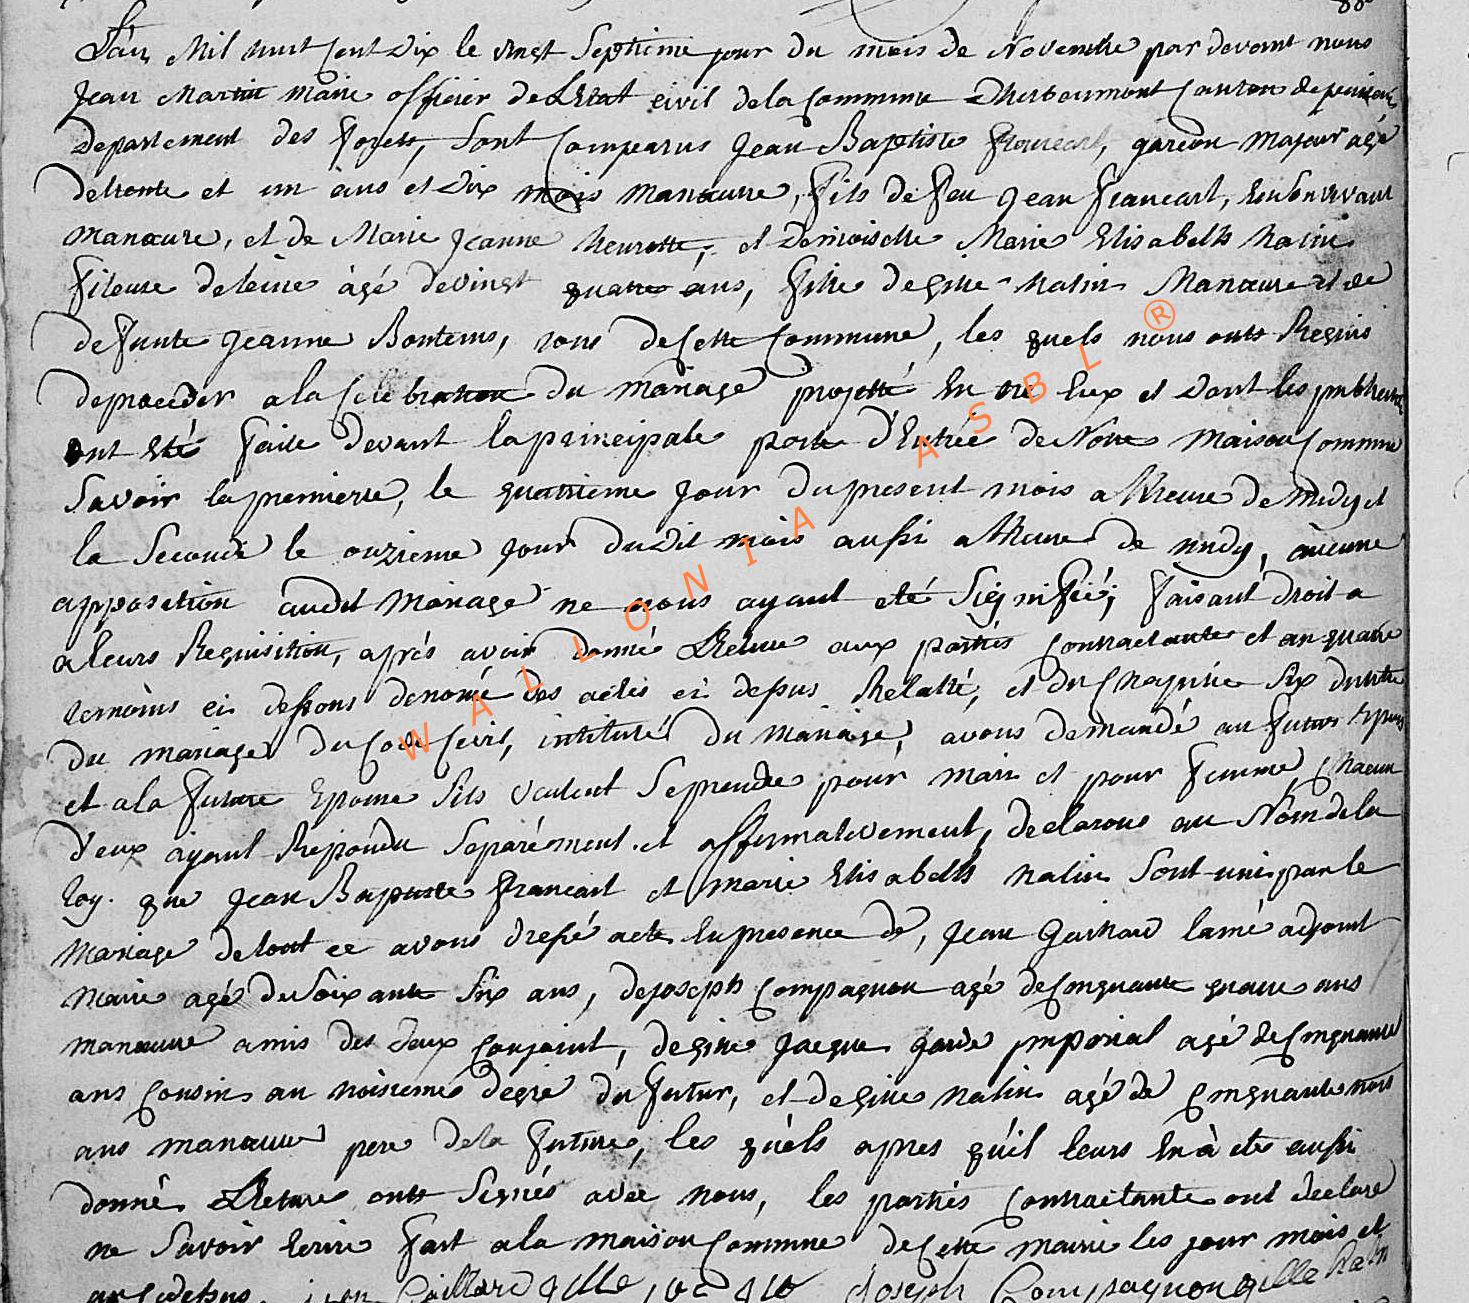 L'an Mil huit Cent Dix le vingt Septieme jour du mois de Novembre par devant nous
Jean Martin maire officier de L'Etat civil de la Commune d'herbeumont Canton de
departement des forets, Sont Comparus Jean Baptiste francart, garcon majeur agé
de trente et un ans et Dix mois manœuvre, fils de feu Jean francart, en Son vivant
manœuvre, et de Marie Jeanne henrotte, et Demoiselle Marie Elisabeth halin
fileuse de leine agé de vingt quatre ans, fille de gille halin Manœuvre et de
defunte Jeanne Bontems, tous de Cette Commune, les quels nous onts Requis
de proceder a la Celebration du mariage projetté Entre Eux et Dont les
ont Eté faite devant la principale porte d'Entrée de Notre Maison Commune
Savoir la premierre, le quatrieme Jour du present mois a l'heure de midy et
la Seconde le onzieme Jour du Dit mois aussi a l'heure de midy, aucune
apposition audit Mariage ne nous ayant eté Signifié, faisant Droit a
a leurs Requisition, aprés avoir donné Lecture aux parties Contractante et au quatre
temoins ci dessous denomé des actes ci dessus Relatté, et du Chapitre Six du titre
du mariage du Code Civil, intitulé Du Mariage, avons demandé au futur Epoux
et a la future Epouse S'ils veulent Se prendre pour mari et pour femme, Chacun
d'eux ayant Repondu Séparément et affirmativement, declarons au Nom de la
loy que Jean Baptiste francart et marie Elisabeth halin Sont unis par le
Mariage de tout ce avons dressé acte En presence de, Jean gaillard lainé adjoint
Maire agé de Soixante Six ans, de joseph Compagnon agé de Cinquante quatre ans
manœuvre amis des deux Conjoint, de gille Jacque garde imperial agé de Cinquante
ans Cousin au troisieme degré du futur, et de gille halin agé de Cinquante trois
ans manœuvre pere de la future, les quels apres qu'il leurs En à eté aussi
donné Lecture onts Signés avec nous, les parties Contractante ont declaré
ne Savoir Ecrire fait a la maison Commune de Cette mairie les jour mois et
an Cidessus. Jean Gaillard gille joseph Compagnon gille halin
WALLONIA ASBL ®